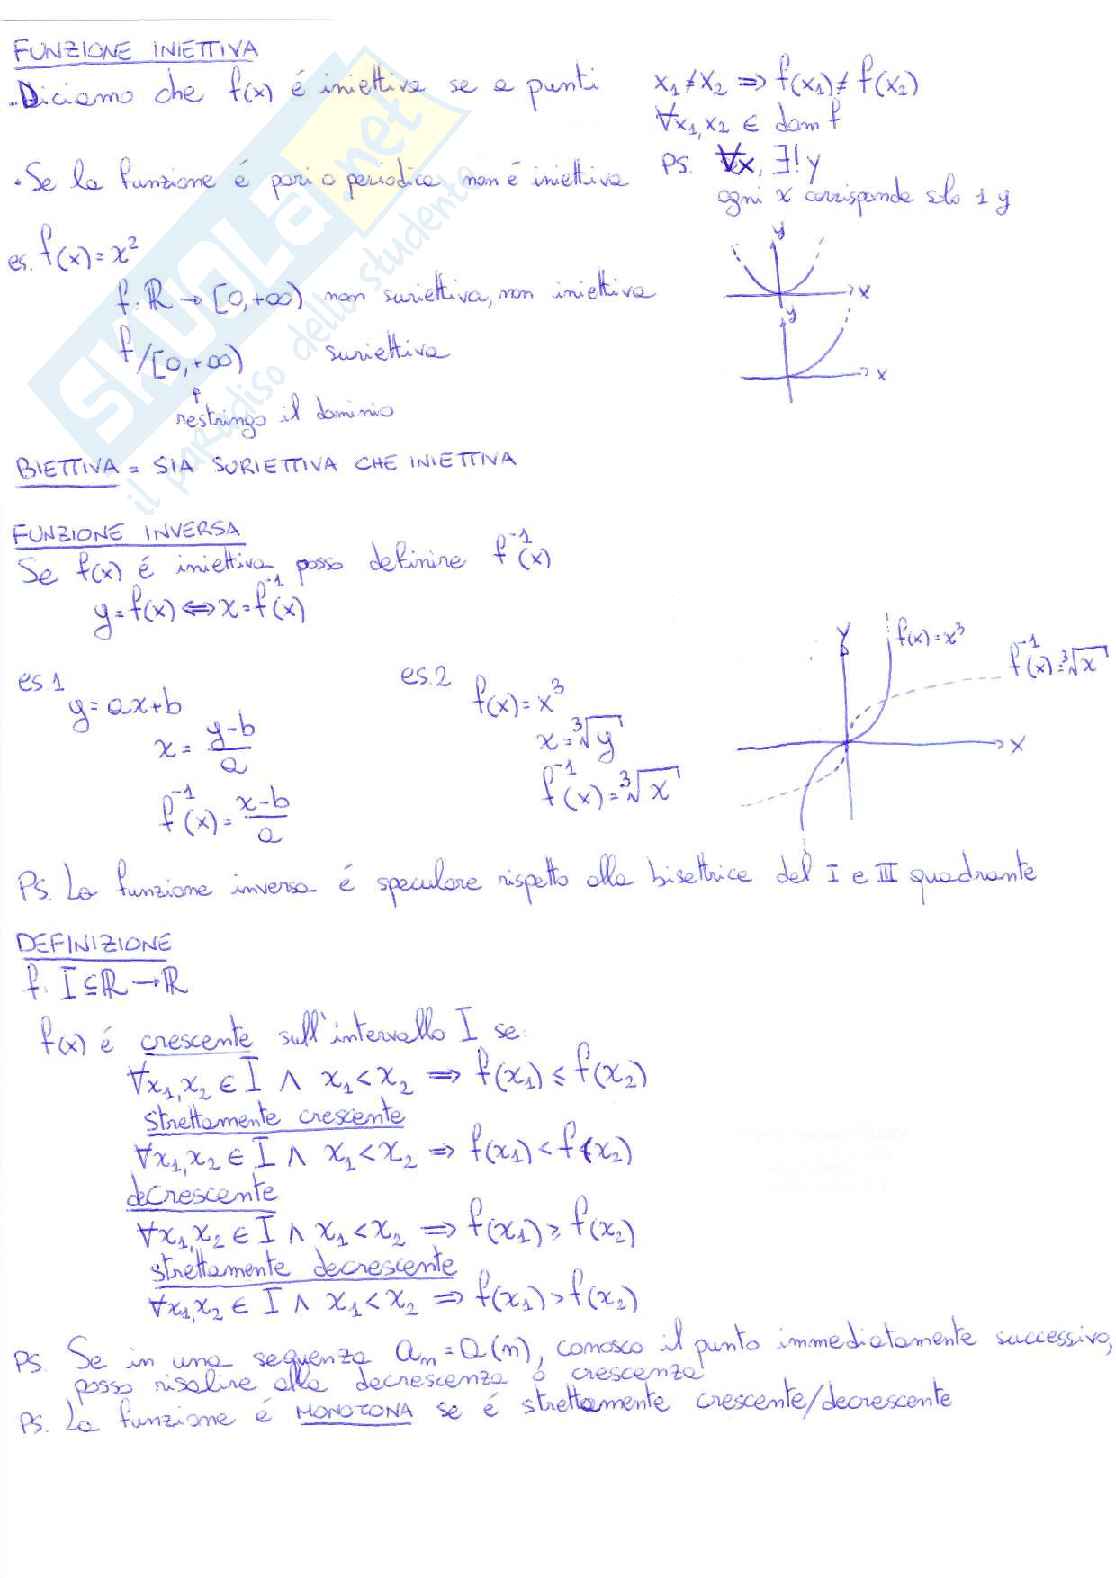 FUNZIONE INIETTIVA
. Diciamo che f(x) é iniettiva se a punti x₁≠x₂ ⇒ f(x₁)≠f(x₂)
∀x₁,x₂ ∈ dom f
• Se la funzione é pari o periodica non é iniettiva
PS. ∀x, ∃! y
ogni x corrisponde solo 1 y
es. f(x)=x²
f: ℝ → [0,+∞) non suriettiva, non iniettiva
f/[0,+∞) suriettiva
restringo il dominio
y
x
y
x
BIETTIVA = SIA SURIETTIVA CHE INIETTIVA
FUNZIONE INVERSA
Se f(x) é iniettiva posso definire f⁻¹(x)
y=f(x) ⇔ x=f⁻¹(x)
es.1
y=ax+b
x = (y-b)/a
f⁻¹(x) = (x-b)/a
es.2 f(x)=x³
x=∛y
f⁻¹(x)=∛x
Y
f(x)=x³
f⁻¹(x)=∛x
X
PS. La funzione inversa é speculare rispetto alla bisettrice del I e III quadrante
DEFINIZIONE
f: I⊆ℝ→ℝ
f(x) é crescente sull'intervallo I se:
∀x₁,x₂ ∈ I ∧ x₁<x₂ ⇒ f(x₁)≤f(x₂)
strettamente crescente
∀x₁,x₂ ∈ I ∧ x₁<x₂ ⇒ f(x₁)<f(x₂)
decrescente
∀x₁,x₂ ∈ I ∧ x₁<x₂ ⇒ f(x₁)≥f(x₂)
strettamente decrescente
∀x₁,x₂ ∈ I ∧ x₁<x₂ ⇒ f(x₁)>f(x₂)
PS. Se in una sequenza aₙ=a(n), conosco il punto immediatamente successivo,
posso risalire alla decrescenza o crescenza
PS. La funzione é MONOTONA se é strettamente crescente/decrescente
SKUOLA.net
il paradiso dello studente